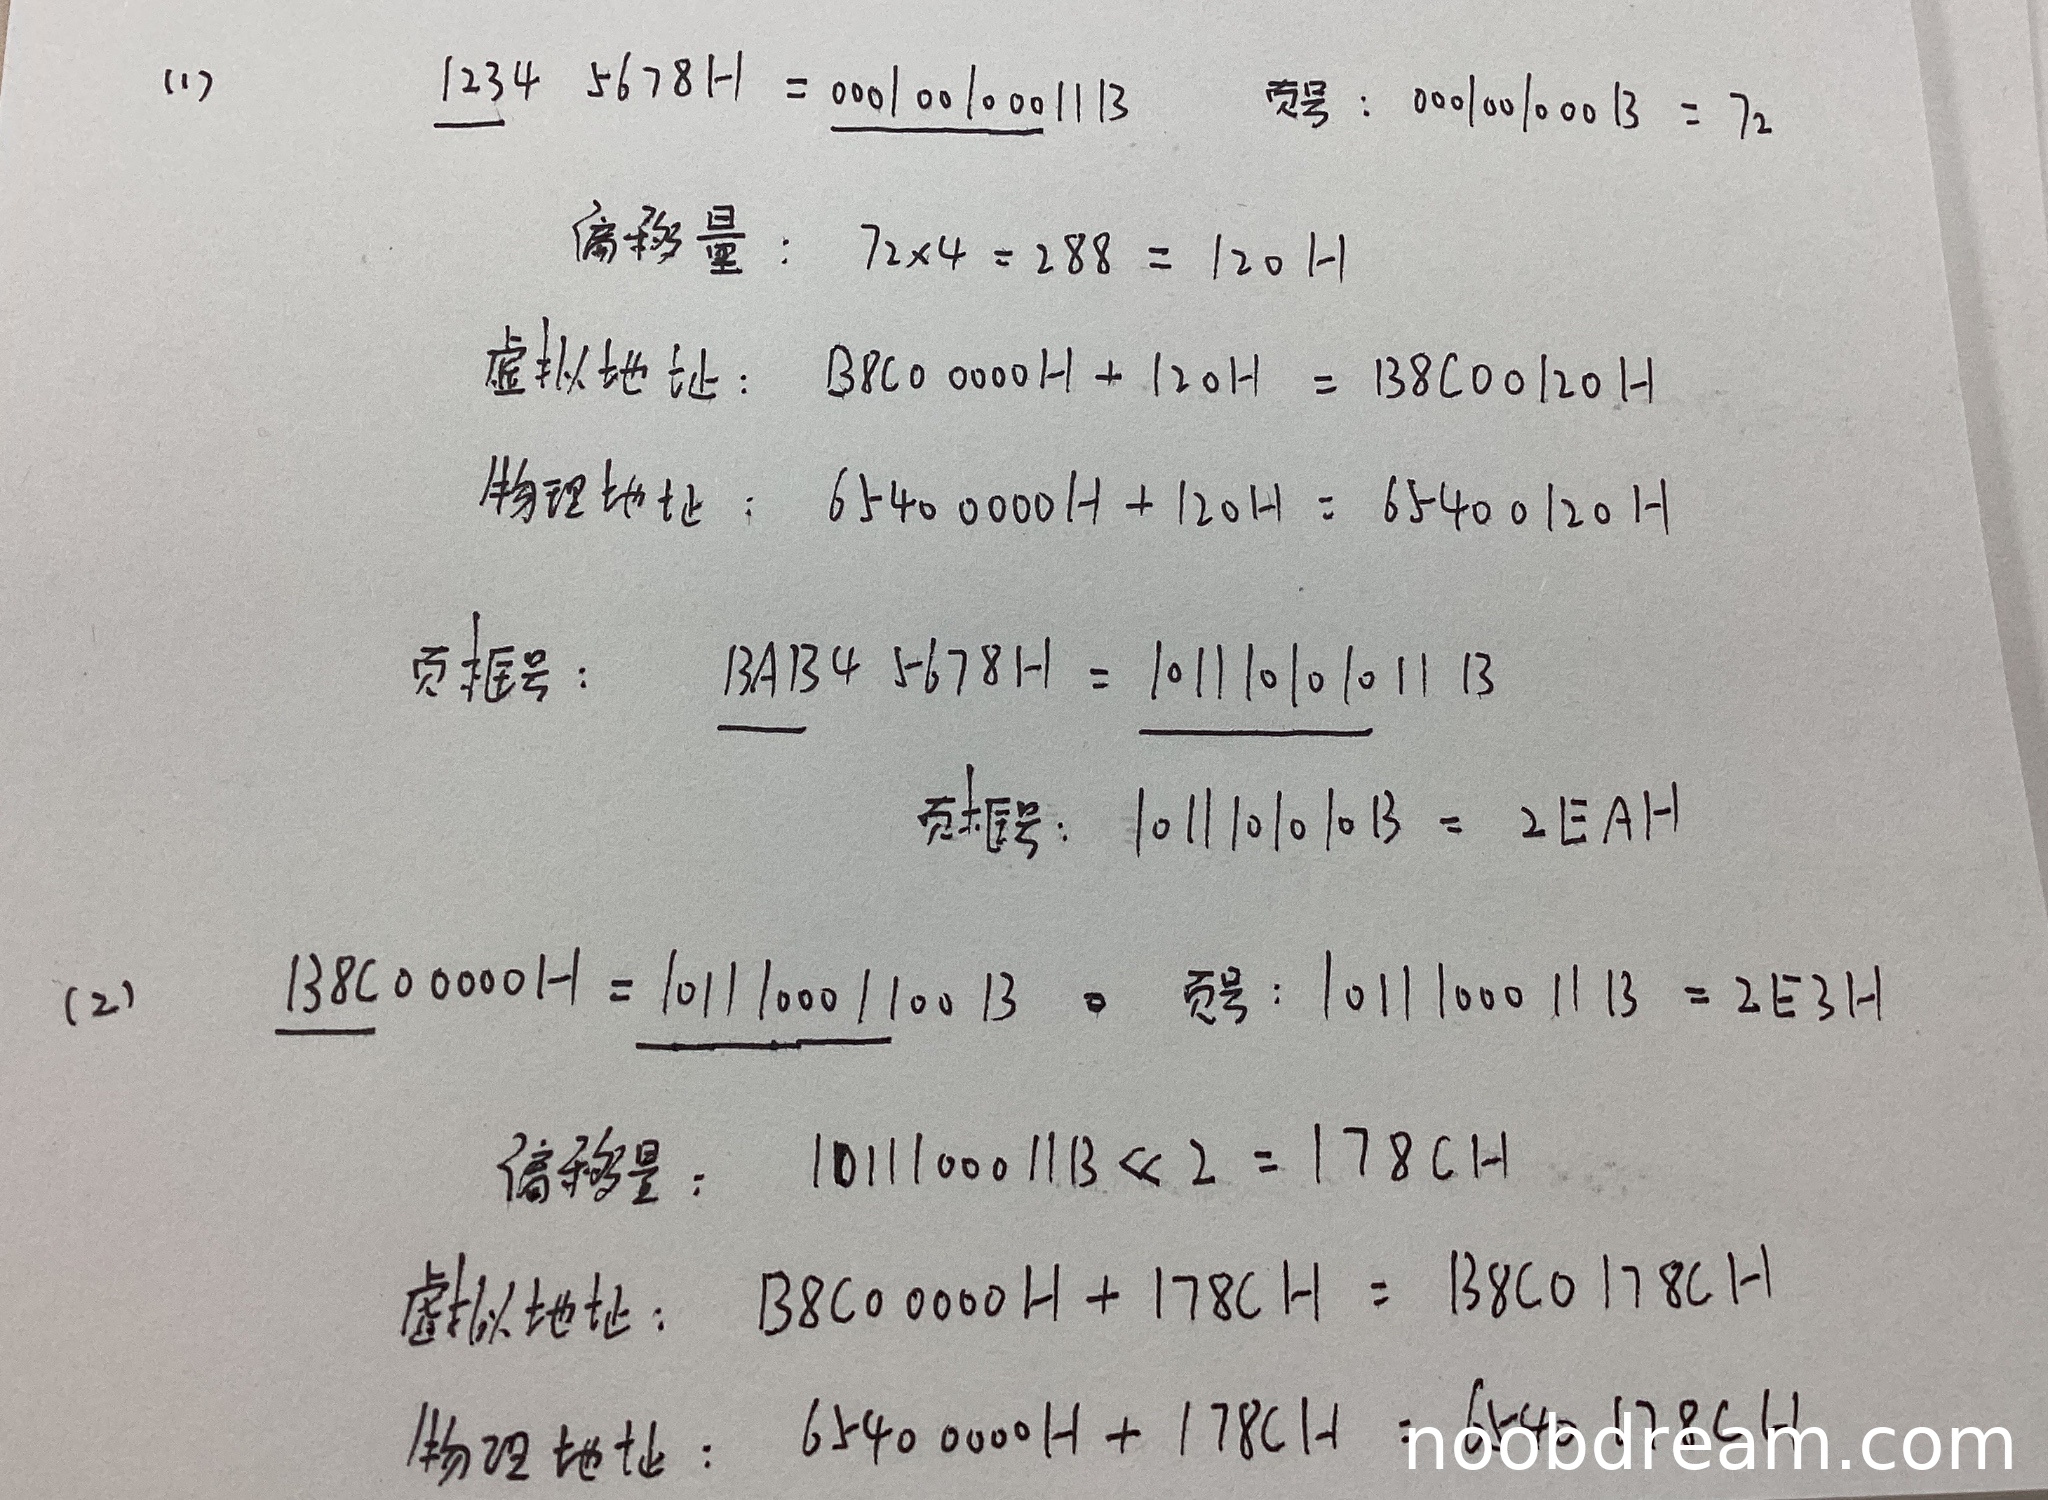 (1) 1234 5678H = 000100100011B 页号: 0001001000B = 72
偏移量: 72×4 = 288 = 120H
虚拟地址: B8C00000H + 120H = B8C00120H
物理地址: 65400000H + 120H = 65400120H
页框号: BAB4 5678H = 101110101011B
页框号: 1011101010B = 2EAH
(2) B8C00000H = 101110001100B 。 页号: 1011100011B = 2E3H
偏移量: 1011100011B << 2 = 178CH
虚拟地址: B8C00000H + 178CH = B8C0178CH
物理地址: 65400000H + 178CH = 6540178CH
noobdream.com